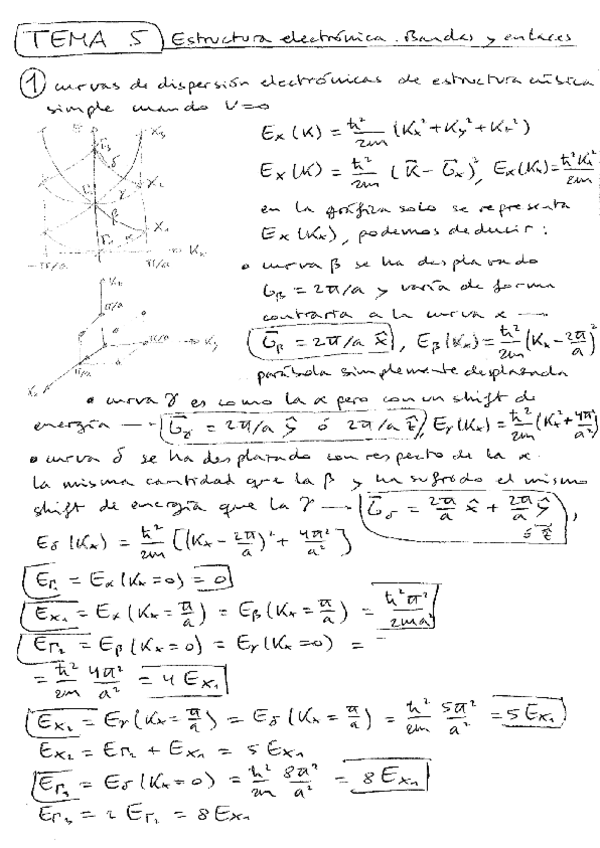 TEMA 5 Estructura electrónica. Bandas y enlaces
① curvas de dispersión electrónicas de estructura cúbica
simple cuando V=0
E_α(K) = ħ²/2m (Kx²+Ky²+Kz²)
E_α(K) = ħ²/2m (K̄ - Ḡα)², E_α(Kx) = ħ²Kx²/2m
en la gráfica solo se representa
E_α(Kx), podemos deducir:
• curva β se ha desplazado
Gβ = 2π/a y varía de forma
contraria a la curva α →
Ḡβ = 2π/a x̂, Eβ(Kx) = ħ²/2m (Kx - 2π/a)²
parábola simplemente desplazada
• curva γ es como la α pero con un shift de
energía → Ḡγ = 2π/a ŷ ó 2π/a ẑ, Eγ(Kx) = ħ²/2m (Kx² + 4π²/a²)
• curva δ se ha desplazado con respecto de la α
la misma cantidad que la β y ha sufrido el mismo
shift de energía que la γ → Ḡδ = 2π/a x̂ + 2π/a ŷ ó ẑ,
Eδ(Kx) = ħ²/2m [(Kx - 2π/a)² + 4π²/a²]
EΓ₁ = Eα(Kx=0) = 0
Ex₁ = Eα(Kx = π/a) = Eβ(Kx = π/a) = ħ²π²/2ma²
EΓ₂ = Eβ(Kx=0) = Eγ(Kx=0) =
= ħ²/2m 4π²/a² = 4 Ex₁
Ex₂ = Eγ(Kx = π/a) = Eδ(Kx = π/a) = ħ²/2m 5π²/a² = 5Ex₁
Ex₂ = EΓ₂ + Ex₁ = 5 Ex₁
EΓ₃ = Eδ(Kx=0) = ħ²/2m 8π²/a² = 8 Ex₁
EΓ₃ = 2 EΓ₂ = 8Ex₁